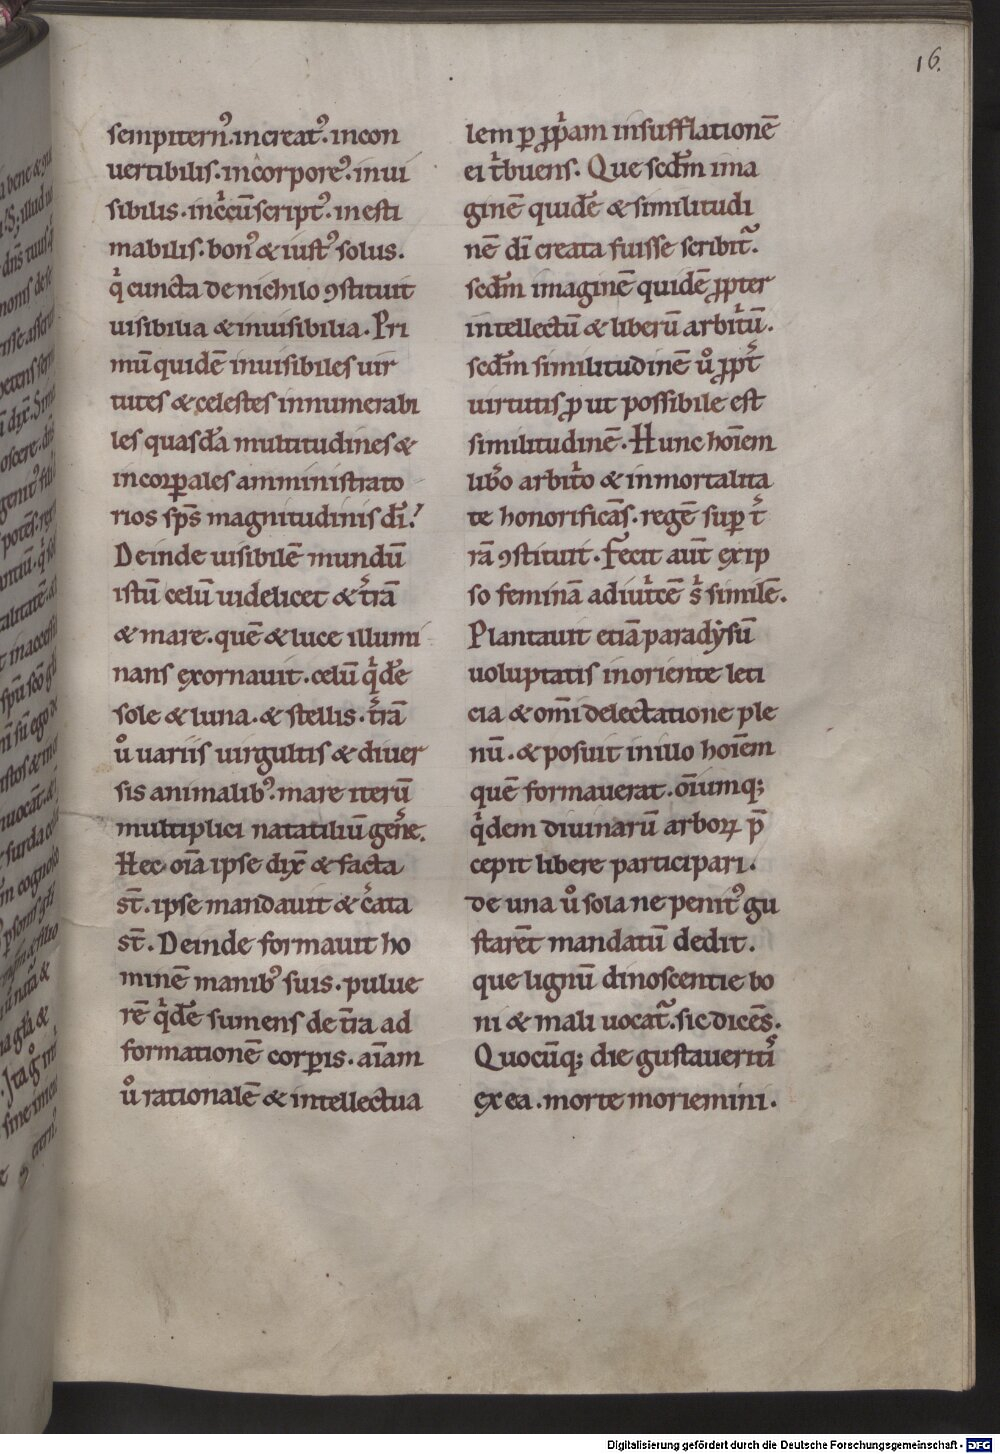 16.
sempitern᾿.increat᾿.incon
uertibilis.incorpore᾿.inui
sibilis.incͥcūscript᾿.inesti
mabilis.bon᾿ & iust᾿ solus.
qͥ cuncta de nichilo ꝯstituit
uisibilia & inuisibilia. Pri
mū quidē inuisibiles uir
tutes & celestes innumerabi
les quasdā multitudines &
incorꝑales amministrato
rios sp̄s magnitudinis dī.
Deinde uisibilē mundū
istū celū uidelicet & t̄rā
& mare.quē & luce illumi
nans exornauit.celū qͥdē
sole & luna.& stellis.t̄rā
uͦ uariis uirgultis & diuer
sis animalib᾿.mare iterū
multiplici natatiliū gen̄e.
Hec oīa ipse dix̄ & facta
st̄.ipse mandauit & c̄ata
st̄. Deinde formauit ho
minē manib᾿ suis.pulue
rē qͥdē sumens de t̄ra ad
formationē corꝑis.aīam
uͦ rationalē & intellectua
lem ꝑ ꝓpͥam insufflationē
ei tͥbuens. Que scd̄m ima
ginē quidē & similitudi
nē dī creata fuisse scribit᷑.
scd̄m imaginē quidē ꝓpter
intellectū & liberū arbitͥū.
scd̄m similitudinē uͦ ꝓpt̄
uirtutis ꝓut possibile est
similitudinē. Hunc hoīem
lib̄o arbitͥo & inmortalita
te honorificās.regē suꝑ t̄
rā ꝯstituit. Fecit aut̄ ex ip
so feminā adiut̄cē sͥ similē.
Plantauit etiā paradẏsū
uoluptatis in oriente leti
cia & om̄i delectatione ple
nū.& posuit in illo hoīem
quē formauerat.oīumq;
qͥdem diuinarū arboꝝ p̄
cepit libere participari.
de una uͦ sola ne penit᾿ gu
starēt mandatū dedit.
que lignū dinoscentie bo
ni & mali uocat᷑.sic dicēs.
Quocūq; die gustaueritͥ
ex ea.morte moriemini.
Digitalisierung gefördert durch die Deutsche Forschungsgemeinschaft - DFG